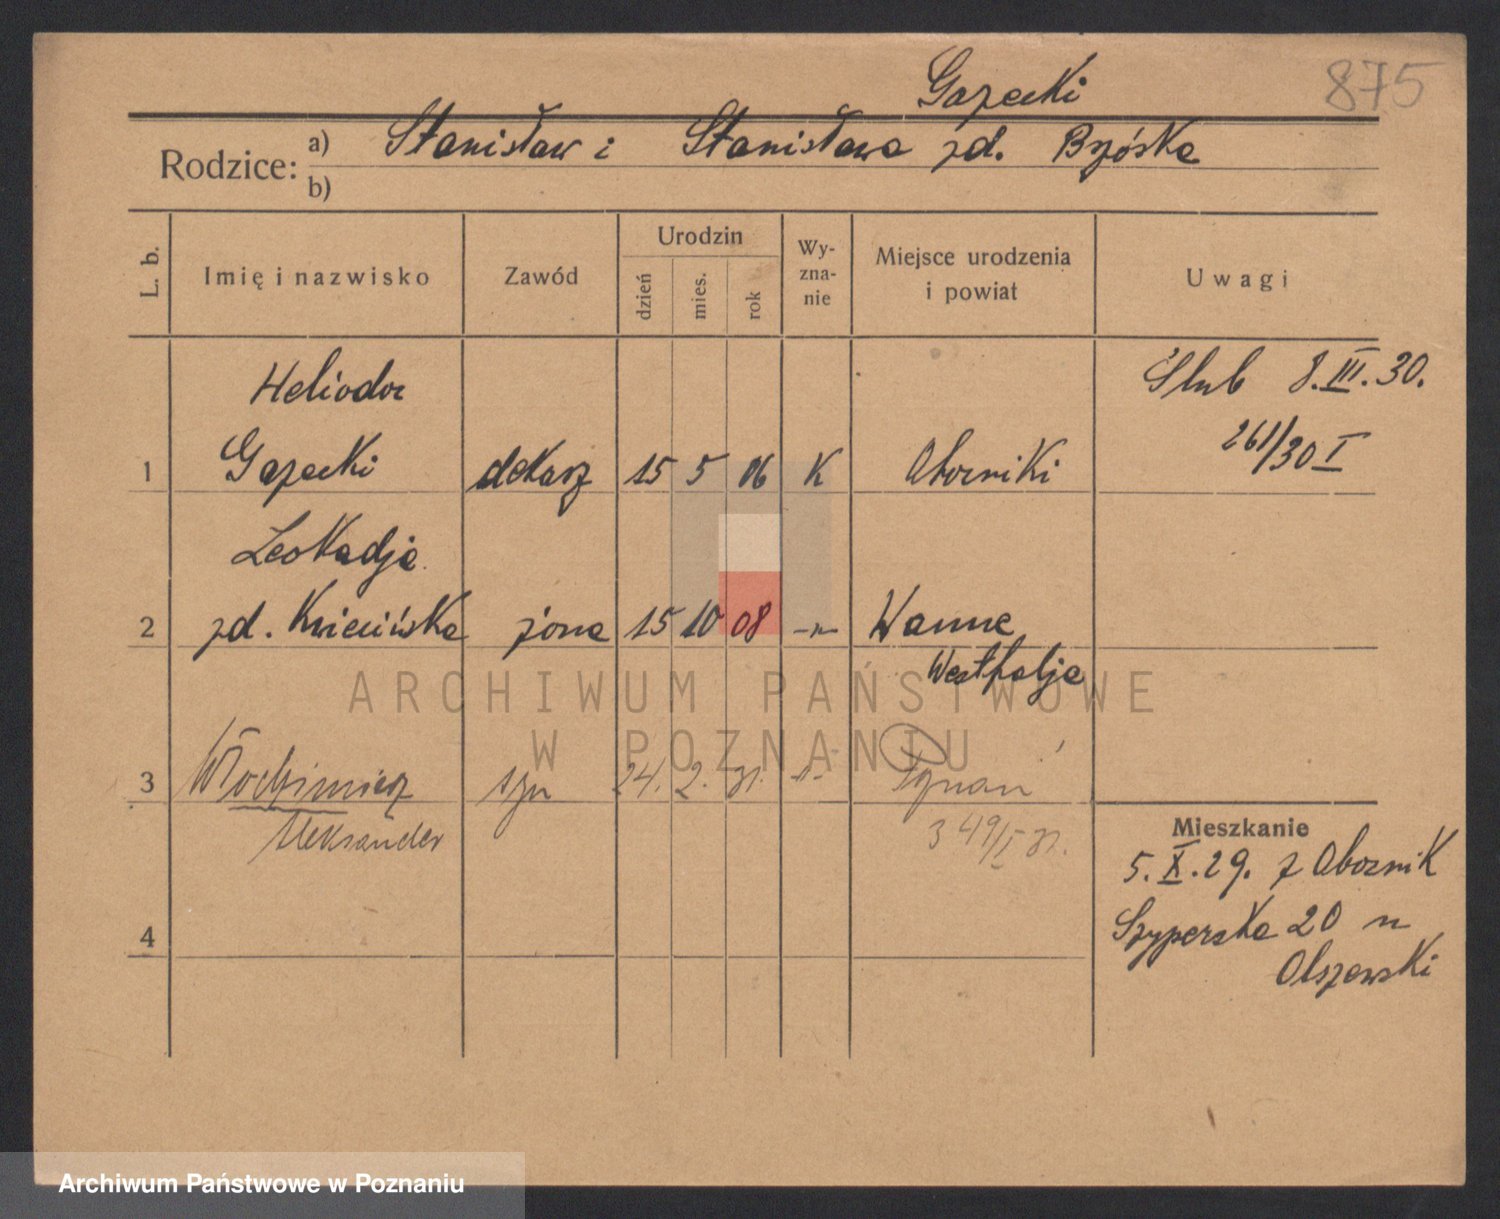 Gazecki
875
Rodzice: a) Stanisław i Stanisława zd. Bzóska
b)
L. b.
Imię i nazwisko
Zawód
Urodzin
dzień
mies.
rok
Wy-
zna-
nie
Miejsce urodzenia
i powiat
Uwagi
Heliodor
1 Gazecki dekarz 15 5 06 K Oborniki
Ślub 8.III.30.
261/30 I
Leokadja
2 zd. Kwiecińska żona 15 10 08 -"- Wanne
Westfalja
3 Włodzimierz syn 24. 2. 31. -"- Poznań
Aleksander 349/I 31.
4
Mieszkanie
5.X.29. z Obornik
Szyperska 20 u
Olszewski
ARCHIWUM PAŃSTWOWE
W POZNANIU
Archiwum Państwowe w Poznaniu